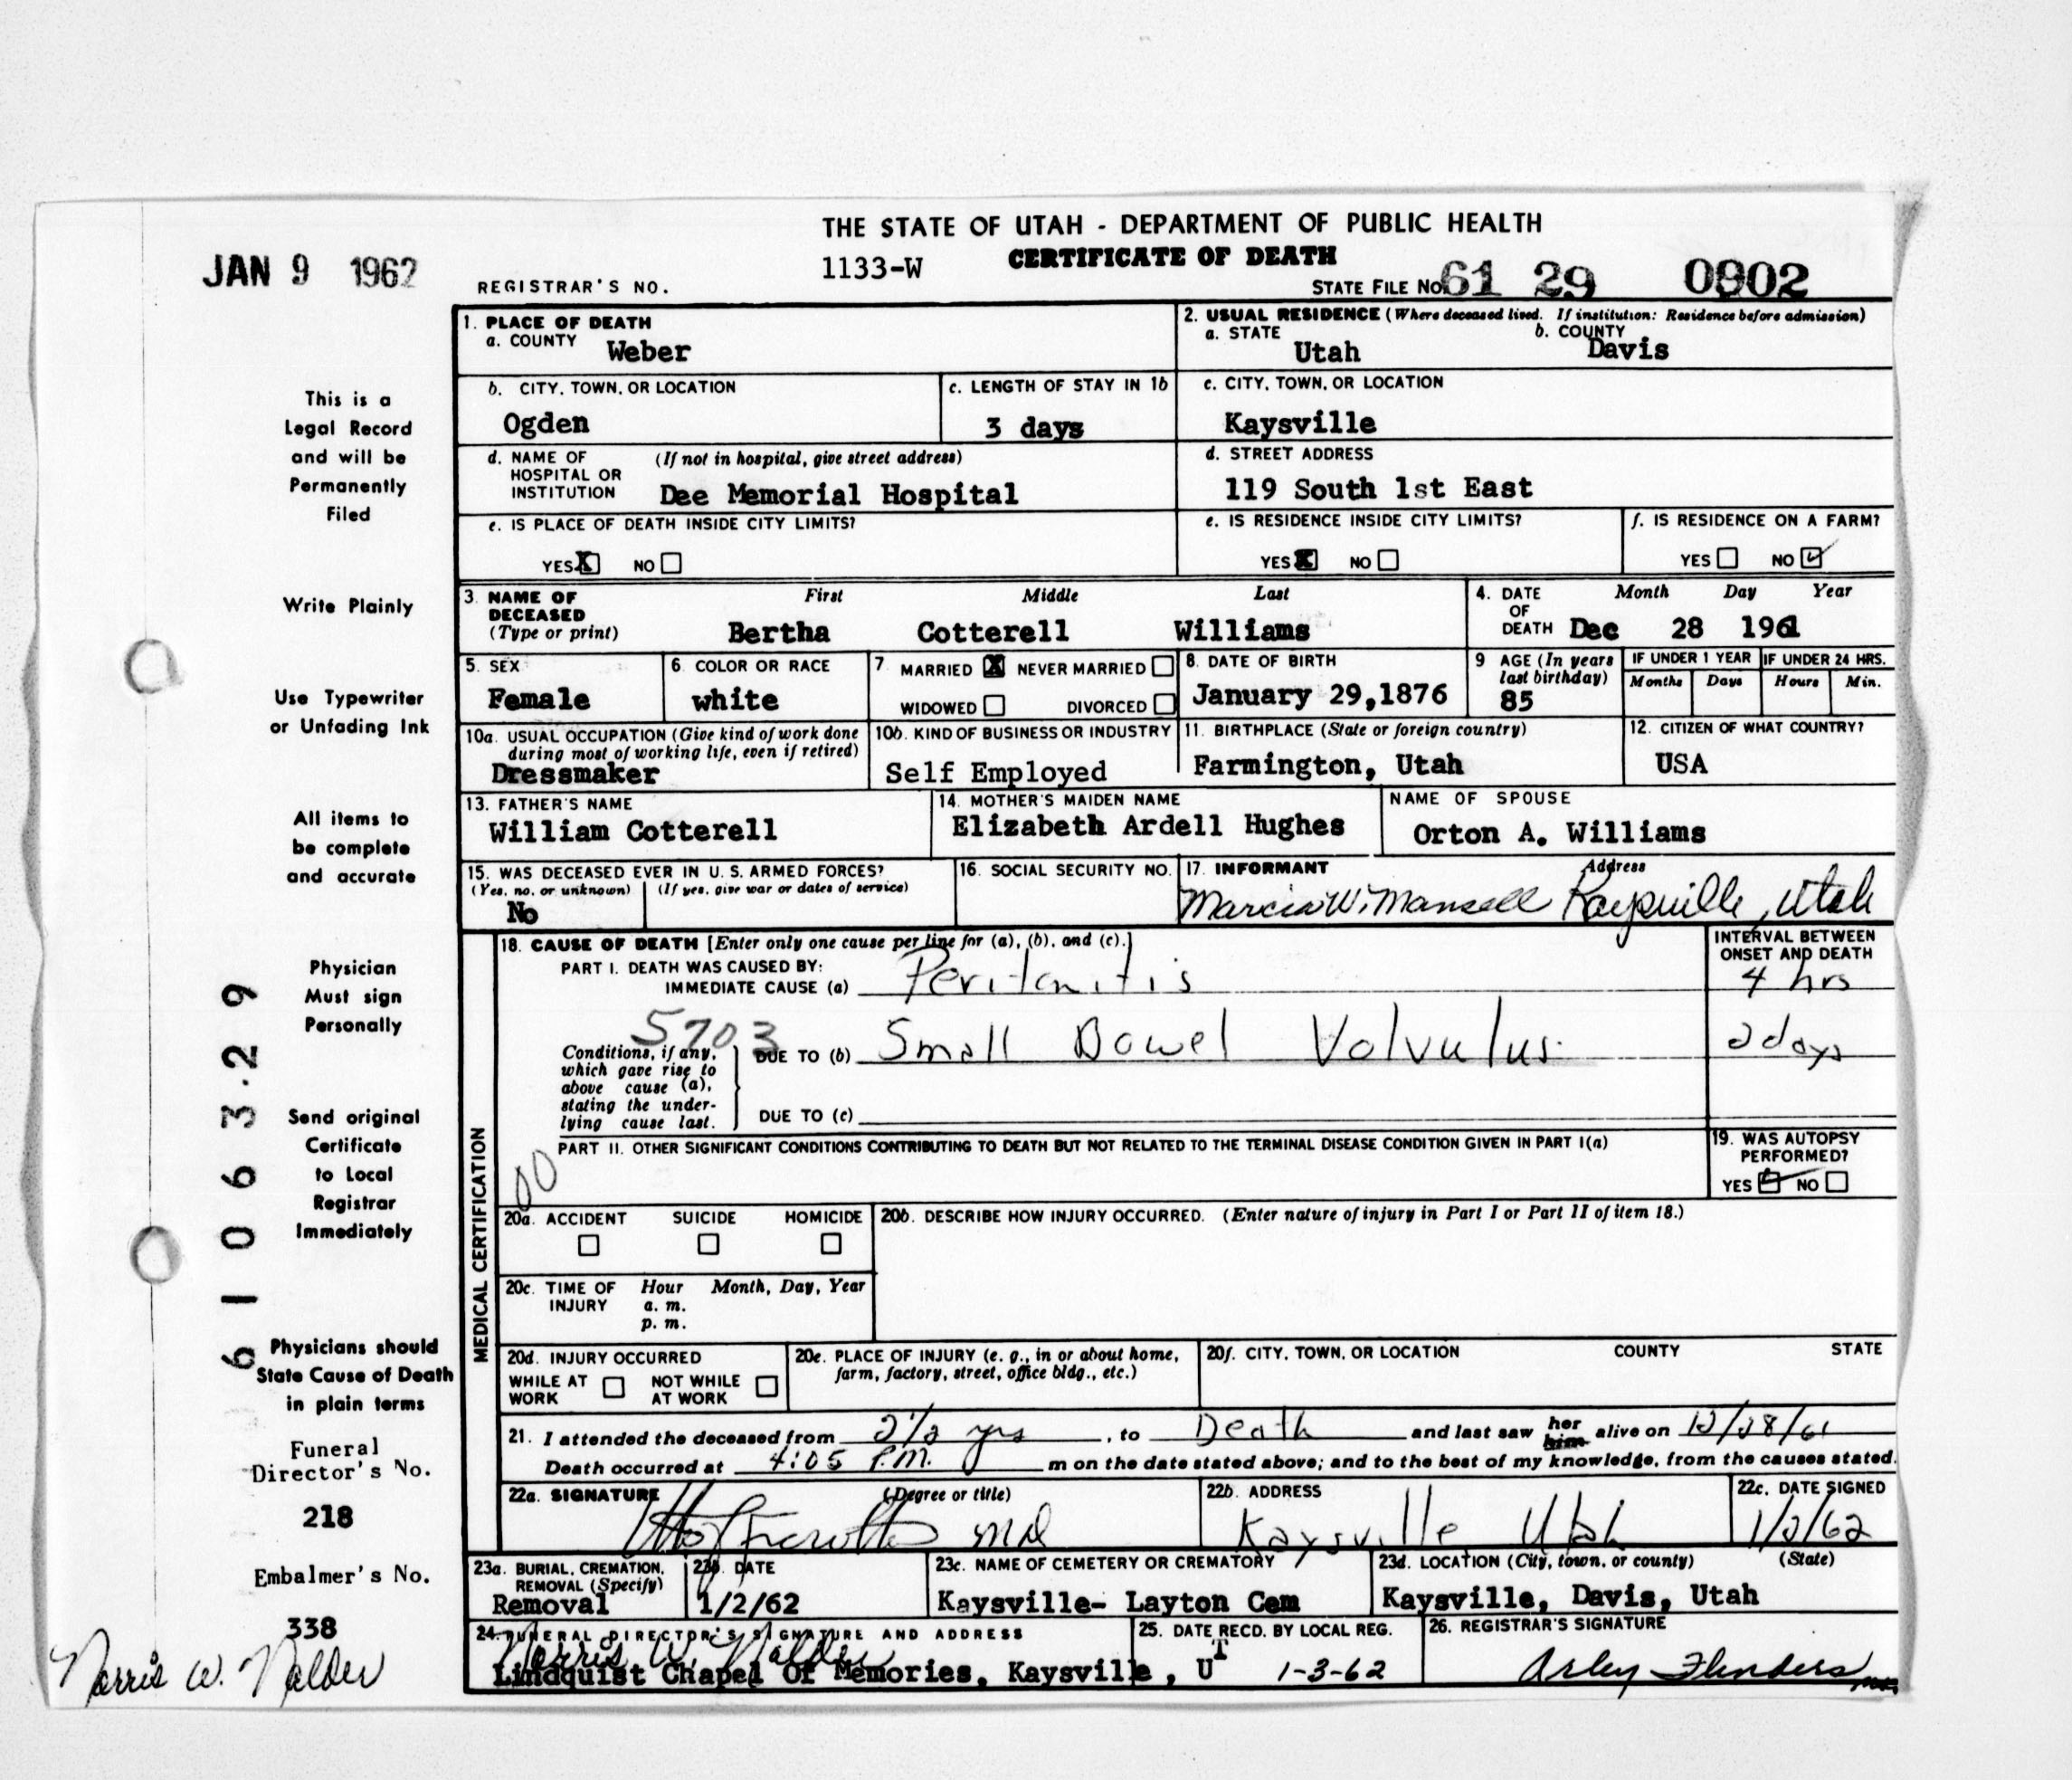 THE STATE OF UTAH - DEPARTMENT OF PUBLIC HEALTH
CERTIFICATE OF DEATH
JAN 9 1962
REGISTRAR'S NO. 1133-W
STATE FILE NO. 61 29 0902
1. PLACE OF DEATH
a. COUNTY Weber
2. USUAL RESIDENCE (Where deceased lived. If institution: Residence before admission)
a. STATE Utah b. COUNTY Davis
b. CITY, TOWN, OR LOCATION Ogden
c. LENGTH OF STAY IN 1b 3 days
c. CITY, TOWN, OR LOCATION Kaysville
d. NAME OF HOSPITAL OR INSTITUTION (If not in hospital, give street address) Dee Memorial Hospital
d. STREET ADDRESS 119 South 1st East
e. IS PLACE OF DEATH INSIDE CITY LIMITS?
YES X NO
e. IS RESIDENCE INSIDE CITY LIMITS?
YES X NO
f. IS RESIDENCE ON A FARM?
YES NO ✓
3. NAME OF DECEASED (Type or print)
First Middle Last
Bertha Cotterell Williams
4. DATE OF DEATH Month Day Year
Dec 28 1961
5. SEX Female
6. COLOR OR RACE white
7. MARRIED X NEVER MARRIED
WIDOWED DIVORCED
8. DATE OF BIRTH January 29,1876
9 AGE (In years last birthday) 85
IF UNDER 1 YEAR Months Days
IF UNDER 24 HRS. Hours Min.
10a. USUAL OCCUPATION (Give kind of work done during most of working life, even if retired) Dressmaker
10b. KIND OF BUSINESS OR INDUSTRY Self Employed
11. BIRTHPLACE (State or foreign country) Farmington, Utah
12. CITIZEN OF WHAT COUNTRY? USA
13. FATHER'S NAME William Cotterell
14. MOTHER'S MAIDEN NAME Elizabeth Ardell Hughes
NAME OF SPOUSE Orton A. Williams
15. WAS DECEASED EVER IN U. S. ARMED FORCES?
(Yes, no, or unknown) (If yes, give war or dates of service)
No
16. SOCIAL SECURITY NO.
17. INFORMANT Address
Marcia W. Mansell Kaysville, Utah
MEDICAL CERTIFICATION
18. CAUSE OF DEATH [Enter only one cause per line for (a), (b), and (c).]
PART I. DEATH WAS CAUSED BY:
IMMEDIATE CAUSE (a) Peritonitis
INTERVAL BETWEEN ONSET AND DEATH
4 hrs
5703
Conditions, if any, which gave rise to above cause (a), stating the underlying cause last.
DUE TO (b) Small Bowel Volvulus. 2 days
DUE TO (c)
PART II. OTHER SIGNIFICANT CONDITIONS CONTRIBUTING TO DEATH BUT NOT RELATED TO THE TERMINAL DISEASE CONDITION GIVEN IN PART I(a)
00
19. WAS AUTOPSY PERFORMED?
YES ✓ NO
20a. ACCIDENT SUICIDE HOMICIDE
20b. DESCRIBE HOW INJURY OCCURRED. (Enter nature of injury in Part I or Part II of item 18.)
20c. TIME OF INJURY Hour Month, Day, Year
a. m.
p. m.
20d. INJURY OCCURRED
WHILE AT WORK NOT WHILE AT WORK
20e. PLACE OF INJURY (e. g., in or about home, farm, factory, street, office bldg., etc.)
20f. CITY, TOWN, OR LOCATION COUNTY STATE
21. I attended the deceased from 2 1/2 yrs, to Death and last saw her him alive on 12/28/61
Death occurred at 4:05 P.M. m on the date stated above; and to the best of my knowledge, from the causes stated.
22a. SIGNATURE (Degree or title) MD
22b. ADDRESS Kaysville Utah
22c. DATE SIGNED 1/2/62
23a. BURIAL, CREMATION, REMOVAL (Specify) Removal
23b. DATE 1/2/62
23c. NAME OF CEMETERY OR CREMATORY Kaysville- Layton Cem
23d. LOCATION (City, town, or county) (State) Kaysville, Davis, Utah
24. FUNERAL DIRECTOR'S SIGNATURE AND ADDRESS
Norris W. Nalder
Lindquist Chapel Of Memories, Kaysville, UT
25. DATE RECD. BY LOCAL REG. 1-3-62
26. REGISTRAR'S SIGNATURE Arley Flinders
This is a
Legal Record
and will be
Permanently
Filed
Write Plainly
Use Typewriter
or Unfading Ink
All items to
be complete
and accurate
Physician
Must sign
Personally
Send original
Certificate
to Local
Registrar
Immediately
Physicians should
State Cause of Death
in plain terms
Funeral
Director's No.
218
Embalmer's No.
338
Norris W. Nalder
6 1 0 6 3 2 9